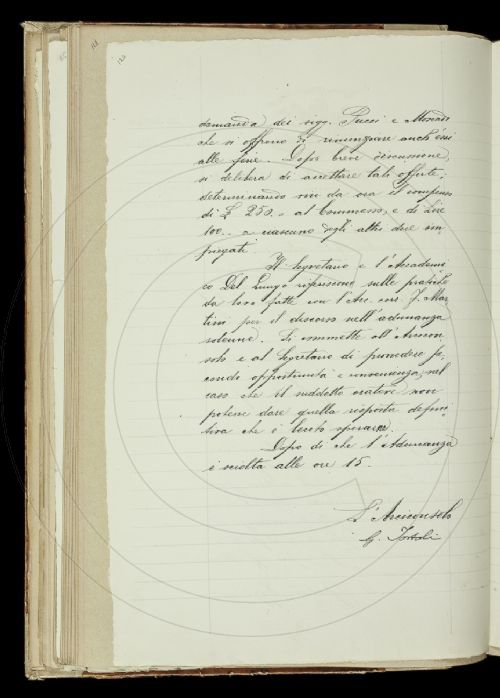 domanda dei sigg. Pucci e
che si offrono di rinunziare anch'essi
alle ferie. Dopo breve discussione,
si delibera di accettare tali offerte;
determinando sin da ora il compenso
di £ 250. al Commesso, e di Lire
100. a ciascuno degli altri due im-
piegati.
Il Segretario e l'Accademi-
co Del Lungo riferiscono sulle pratiche
da loro fatte con l'Acc. cor. F. Mar-
tini per il discorso nell'adunanza
solenne. Si commette all'Arcicon-
solo e al Segretario di procedere se-
condo opportunità e convenienza, nel
caso che il suddetto oratore non
potesse dare quella risposta defini-
tiva che è lecito sperare.
Dopo di che l'Adunanza
è sciolta alle ore 15.
L'Arciconsolo
G. Tortoli